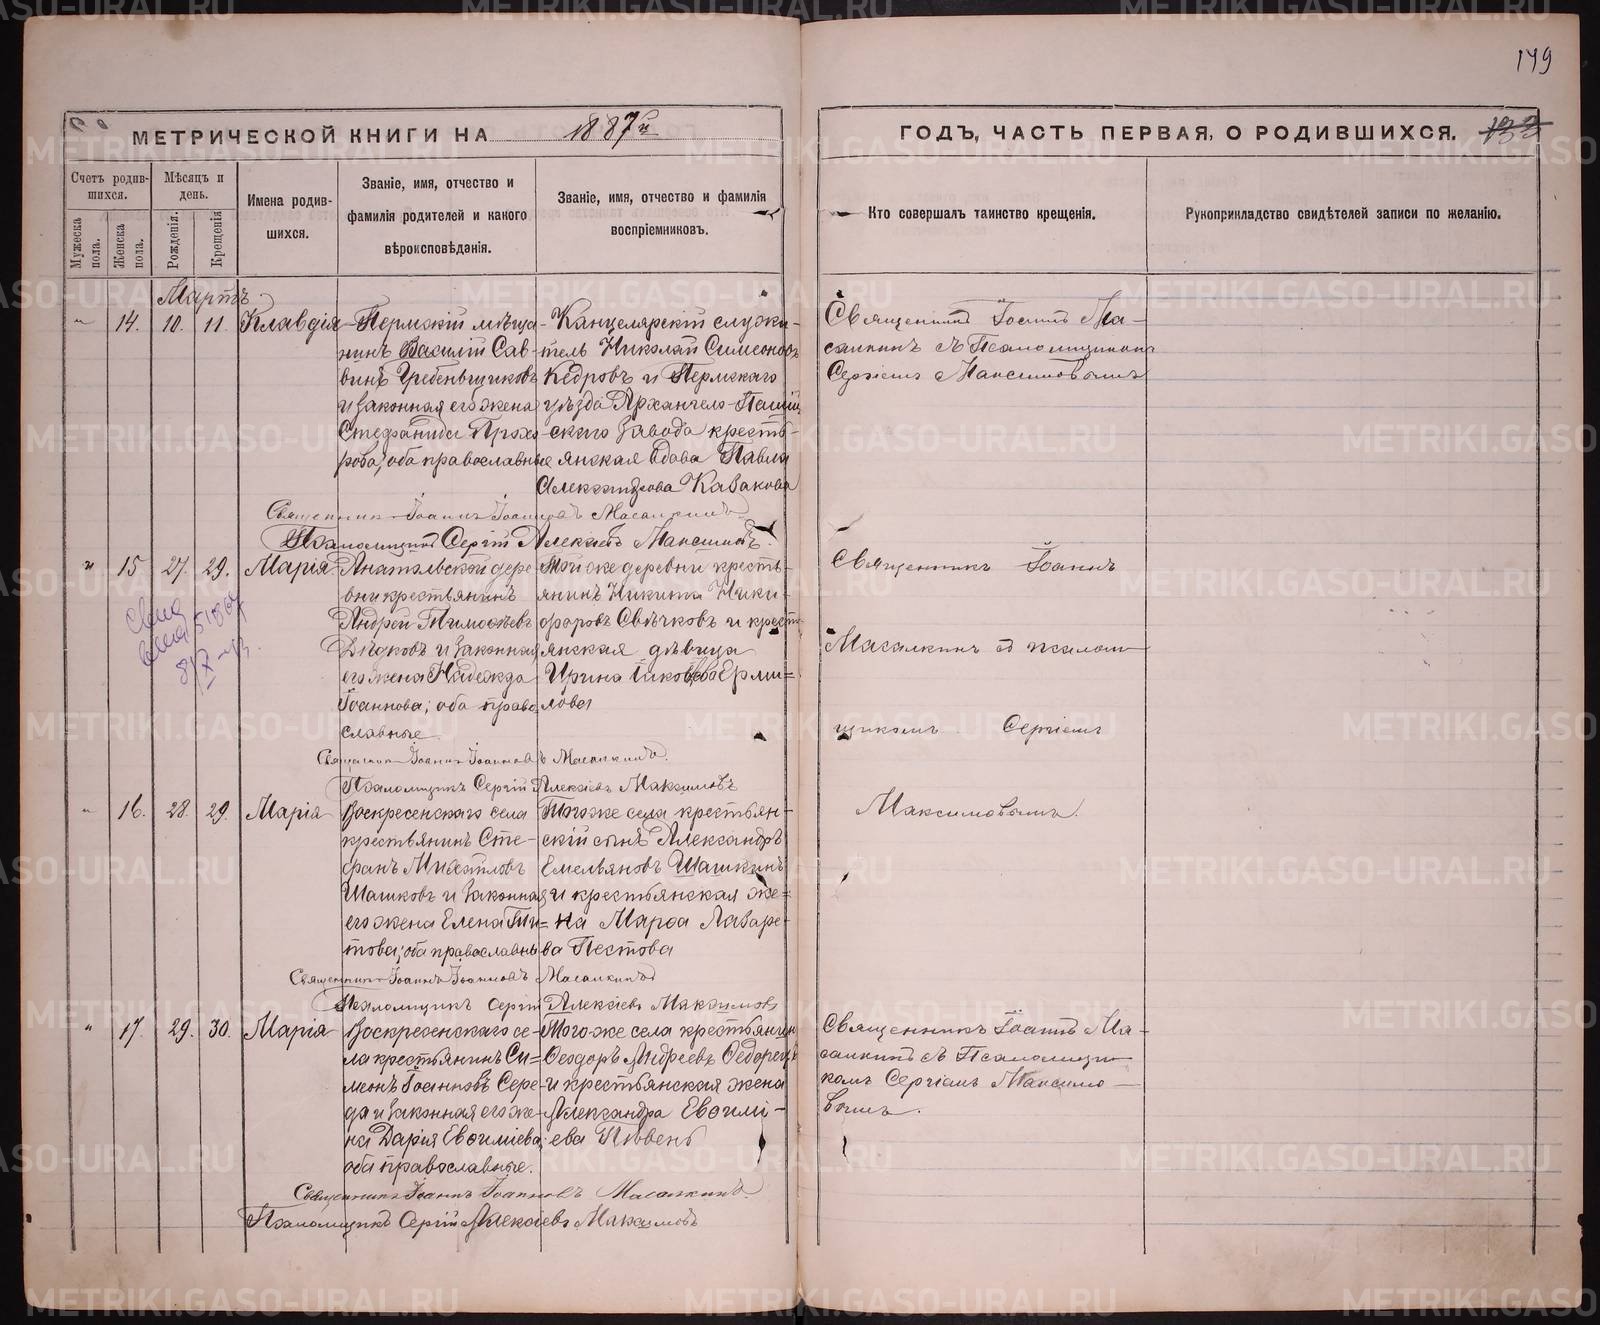 149
МЕТРИЧЕСКОЙ КНИГИ НА 1887й
ГОДЪ, ЧАСТЬ ПЕРВАЯ, О РОДИВШИХСЯ.
Счетъ родив-
шихся.
Мѣсяцъ и
день.
Мужеска
пола.
Женска
пола.
Рожденія.
Крещенія
Имена родив-
шихся.
Званіе, имя, отчество и
фамилія родителей и какого
вѣроисповѣданія.
Званіе, имя, отчество и фамилія
воспріемниковъ.
Кто совершалъ таинство крещенія.
Рукоприкладство свидѣтелей записи по желанію.
Мартъ
14. 10. 11. Клавдія
Пермскій мѣща-
нинъ Василій Сав-
винъ Гребеньщиковъ
и законная его жена
Стефанида Прохо-
рова; оба православные
Канцелярскій служи-
тель Николай Симеоновъ
Кедровъ и Пермскаго
уѣзда Архангело-Паший-
скаго завода кресть-
янская вдова Павла
Александрова Казакова
Священникъ Іоаннъ Ма-
салкинъ съ Псаломщикомъ
Сергіемъ Максимовымъ
Священникъ Іоаннъ Іоанновъ Масалкинъ
Псаломщикъ Сергій Алексѣевъ Максимовъ.
15 27. 29. Марія
дере-
вни крестьянинъ
Андрей Тимофѣевъ
Дѣдковъ и законная
его жена Надежда
Іоаннова; оба право-
славные
Той же деревни кресть-
янинъ Никита Ники-
форовъ Свѣчковъ и крест-
янская дѣвица
Ирина Ерми-
лова
Священникъ Іоаннъ
Масалкинъ съ псалом-
щикомъ Сергіемъ
Максимовымъ.
Священникъ Іоаннъ Іоанновъ Масалкинъ.
Псаломщикъ Сергій Алексѣевъ Максимовъ
16. 28. 29. Марія
Воскресенскаго села
крестьянинъ Сте-
фанъ
Шашковъ и законная
его жена Елена Ти-
това; оба православны
Того же села крестьян-
скій сынъ Александръ
Емельяновъ Шашкинъ
и крестьянская же-
на Марѳа Лазаре-
ва Пестова
Священникъ Іоаннъ Іоанновъ Масалкинъ
Псаломщикъ Сергій Алексѣевъ Максимовъ
17. 29. 30. Марія
Воскресенскаго се-
ла крестьянинъ Си-
меонъ Іоанновъ Сере-
да и законная его же-
на Дарія Евѳиміева;
оба православные.
Того же села крестьянинъ
Ѳеодоръ Андреевъ Ѳедорецъ
и крестьянская жена
Александра Евѳимі-
ева Пивень
Священникъ Іоаннъ Ма-
салкинъ съ Псаломщи-
комъ Сергіемъ Максимо-
вымъ.
Священникъ Іоаннъ Іоанновъ Масалкинъ.
Псаломщикъ Сергій Алексѣевъ Максимовъ
METRIKI.GASO-URAL.RU